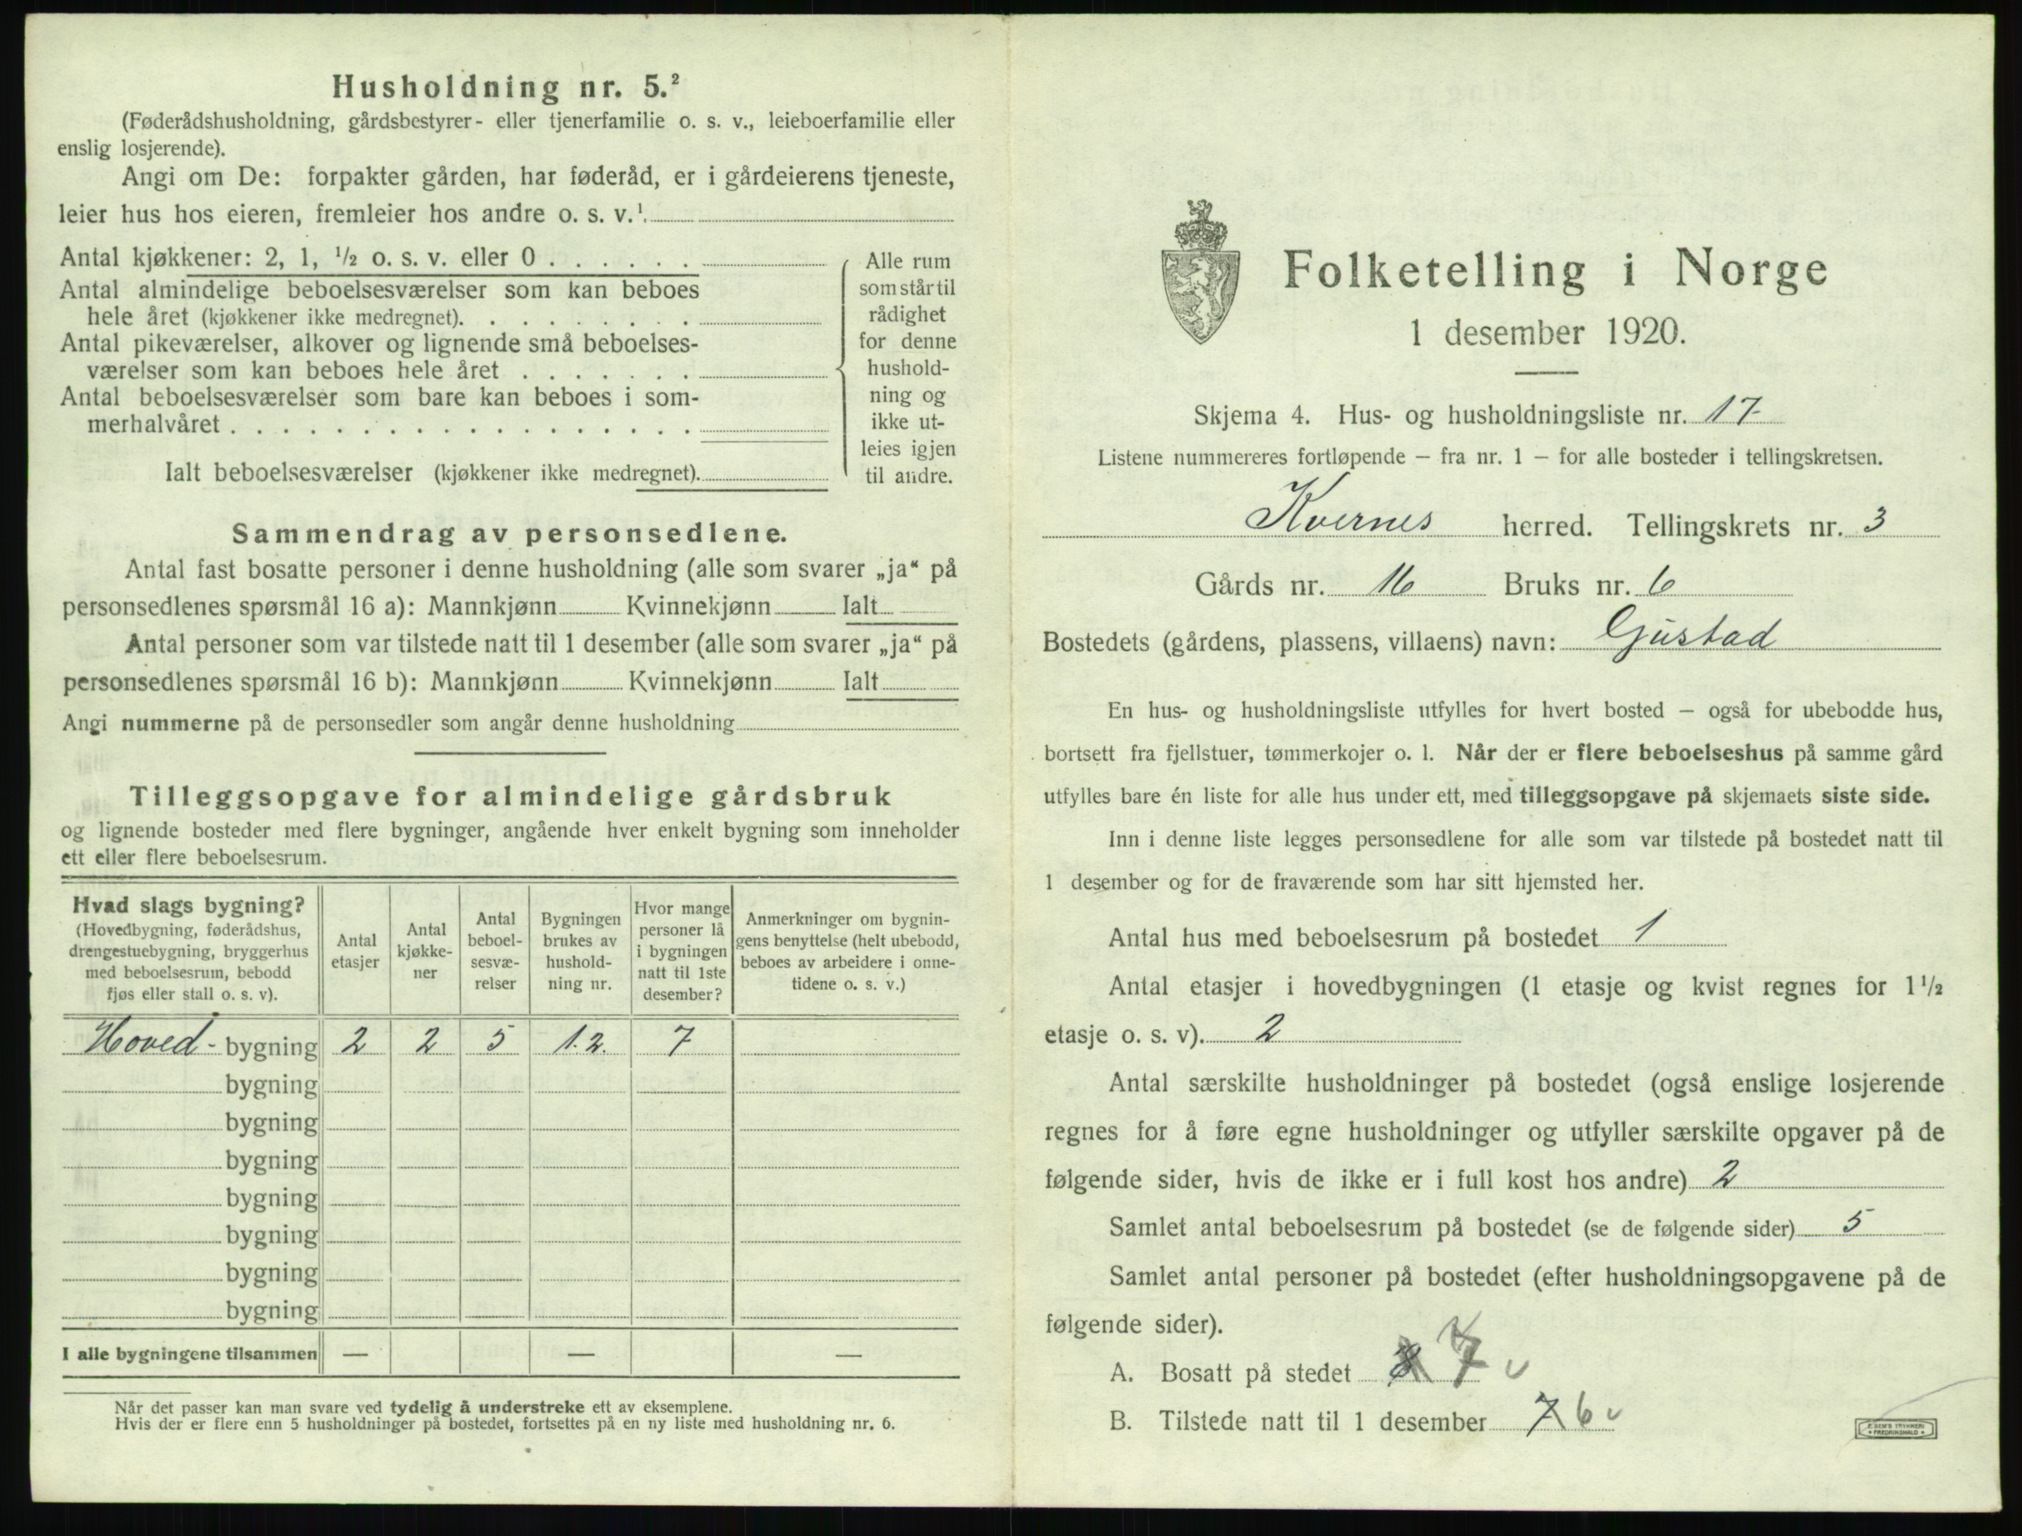 Husholdning nr. 5.²
(Føderådshusholdning, gårdsbestyrer- eller tjenerfamilie o. s. v., leieboerfamilie eller
enslig losjerende).
Angi om De: forpakter gården, har føderåd, er i gårdeierens tjeneste,
leier hus hos eieren, fremleier hos andre o. s. v.¹
Antal kjøkkener: 2, 1, ½ o. s. v. eller 0 . . . . . .
Antal almindelige beboelsesværelser som kan beboes
hele året (kjøkkener ikke medregnet). . . . . . . . .
Antal pikeværelser, alkover og lignende små beboelses-
værelser som kan beboes hele året . . . . . . .
Antal beboelsesværelser som bare kan beboes i som-
merhalvåret . . . . . . . . . . . . . . . . . .
Ialt beboelsesværelser (kjøkkener ikke medregnet).
Alle rum
som står til
rådighet
for denne
hushold-
ning og
ikke ut-
leies igjen
til andre.
Sammendrag av personsedlene.
Antal fast bosatte personer i denne husholdning (alle som svarer „ja“ på
personsedlenes spørsmål 16 a): Mannkjønn Kvinnekjønn Ialt
Antal personer som var tilstede natt til 1 desember (alle som svarer „ja“ på
personsedlenes spørsmål 16 b): Mannkjønn Kvinnekjønn Ialt
Angi nummerne på de personsedler som angår denne husholdning
Tilleggsopgave for almindelige gårdsbruk
og lignende bosteder med flere bygninger, angående hver enkelt bygning som inneholder
ett eller flere beboelsesrum.
Hvad slags bygning?
(Hovedbygning, føderådshus,
drengestuebygning, bryggerhus
med beboelsesrum, bebodd
fjøs eller stall o. s. v).
Antal
etasjer
Antal
kjøkke-
ner
Antal
beboel-
sesvæ-
relser
Bygningen
brukes av
hushold-
ning nr.
Hvor mange
personer lå
i bygningen
natt til 1ste
desember?
Anmerkninger om bygnin-
gens benyttelse (helt ubebodd,
beboes av arbeidere i onne-
tidene o. s. v.)
Hoved- bygning 2 2 5 1.2. 7
bygning
bygning
bygning
bygning
bygning
bygning
bygning
I alle bygningene tilsammen — — —
Når det passer kan man svare ved tydelig å understreke ett av eksemplene.
Hvis der er flere enn 5 husholdninger på bostedet, fortsettes på en ny liste med husholdning nr. 6.
Folketelling i Norge
1 desember 1920.
Skjema 4. Hus- og husholdningsliste nr. 17
Listene nummereres fortløpende – fra nr. 1 – for alle bosteder i tellingskretsen.
Kvernes herred. Tellingskrets nr. 3
Gårds nr. 16 Bruks nr. 6
Bostedets (gårdens, plassens, villaens) navn: Gustad
En hus- og husholdningsliste utfylles for hvert bosted – også for ubebodde hus,
bortsett fra fjellstuer, tømmerkojer o. l. Når der er flere beboelseshus på samme gård
utfylles bare én liste for alle hus under ett, med tilleggsopgave på skjemaets siste side.
Inn i denne liste legges personsedlene for alle som var tilstede på bostedet natt til
1 desember og for de fraværende som har sitt hjemsted her.
Antal hus med beboelsesrum på bostedet 1
Antal etasjer i hovedbygningen (1 etasje og kvist regnes for 1½
etasje o. s. v). 2
Antal særskilte husholdninger på bostedet (også enslige losjerende
regnes for å føre egne husholdninger og utfyller særskilte opgaver på de
følgende sider, hvis de ikke er i full kost hos andre) 2
Samlet antal beboelsesrum på bostedet (se de følgende sider) 5
Samlet antal personer på bostedet (efter husholdningsopgavene på de
følgende sider).
A. Bosatt på stedet 8 7 v
B. Tilstede natt til 1 desember 7 6 v